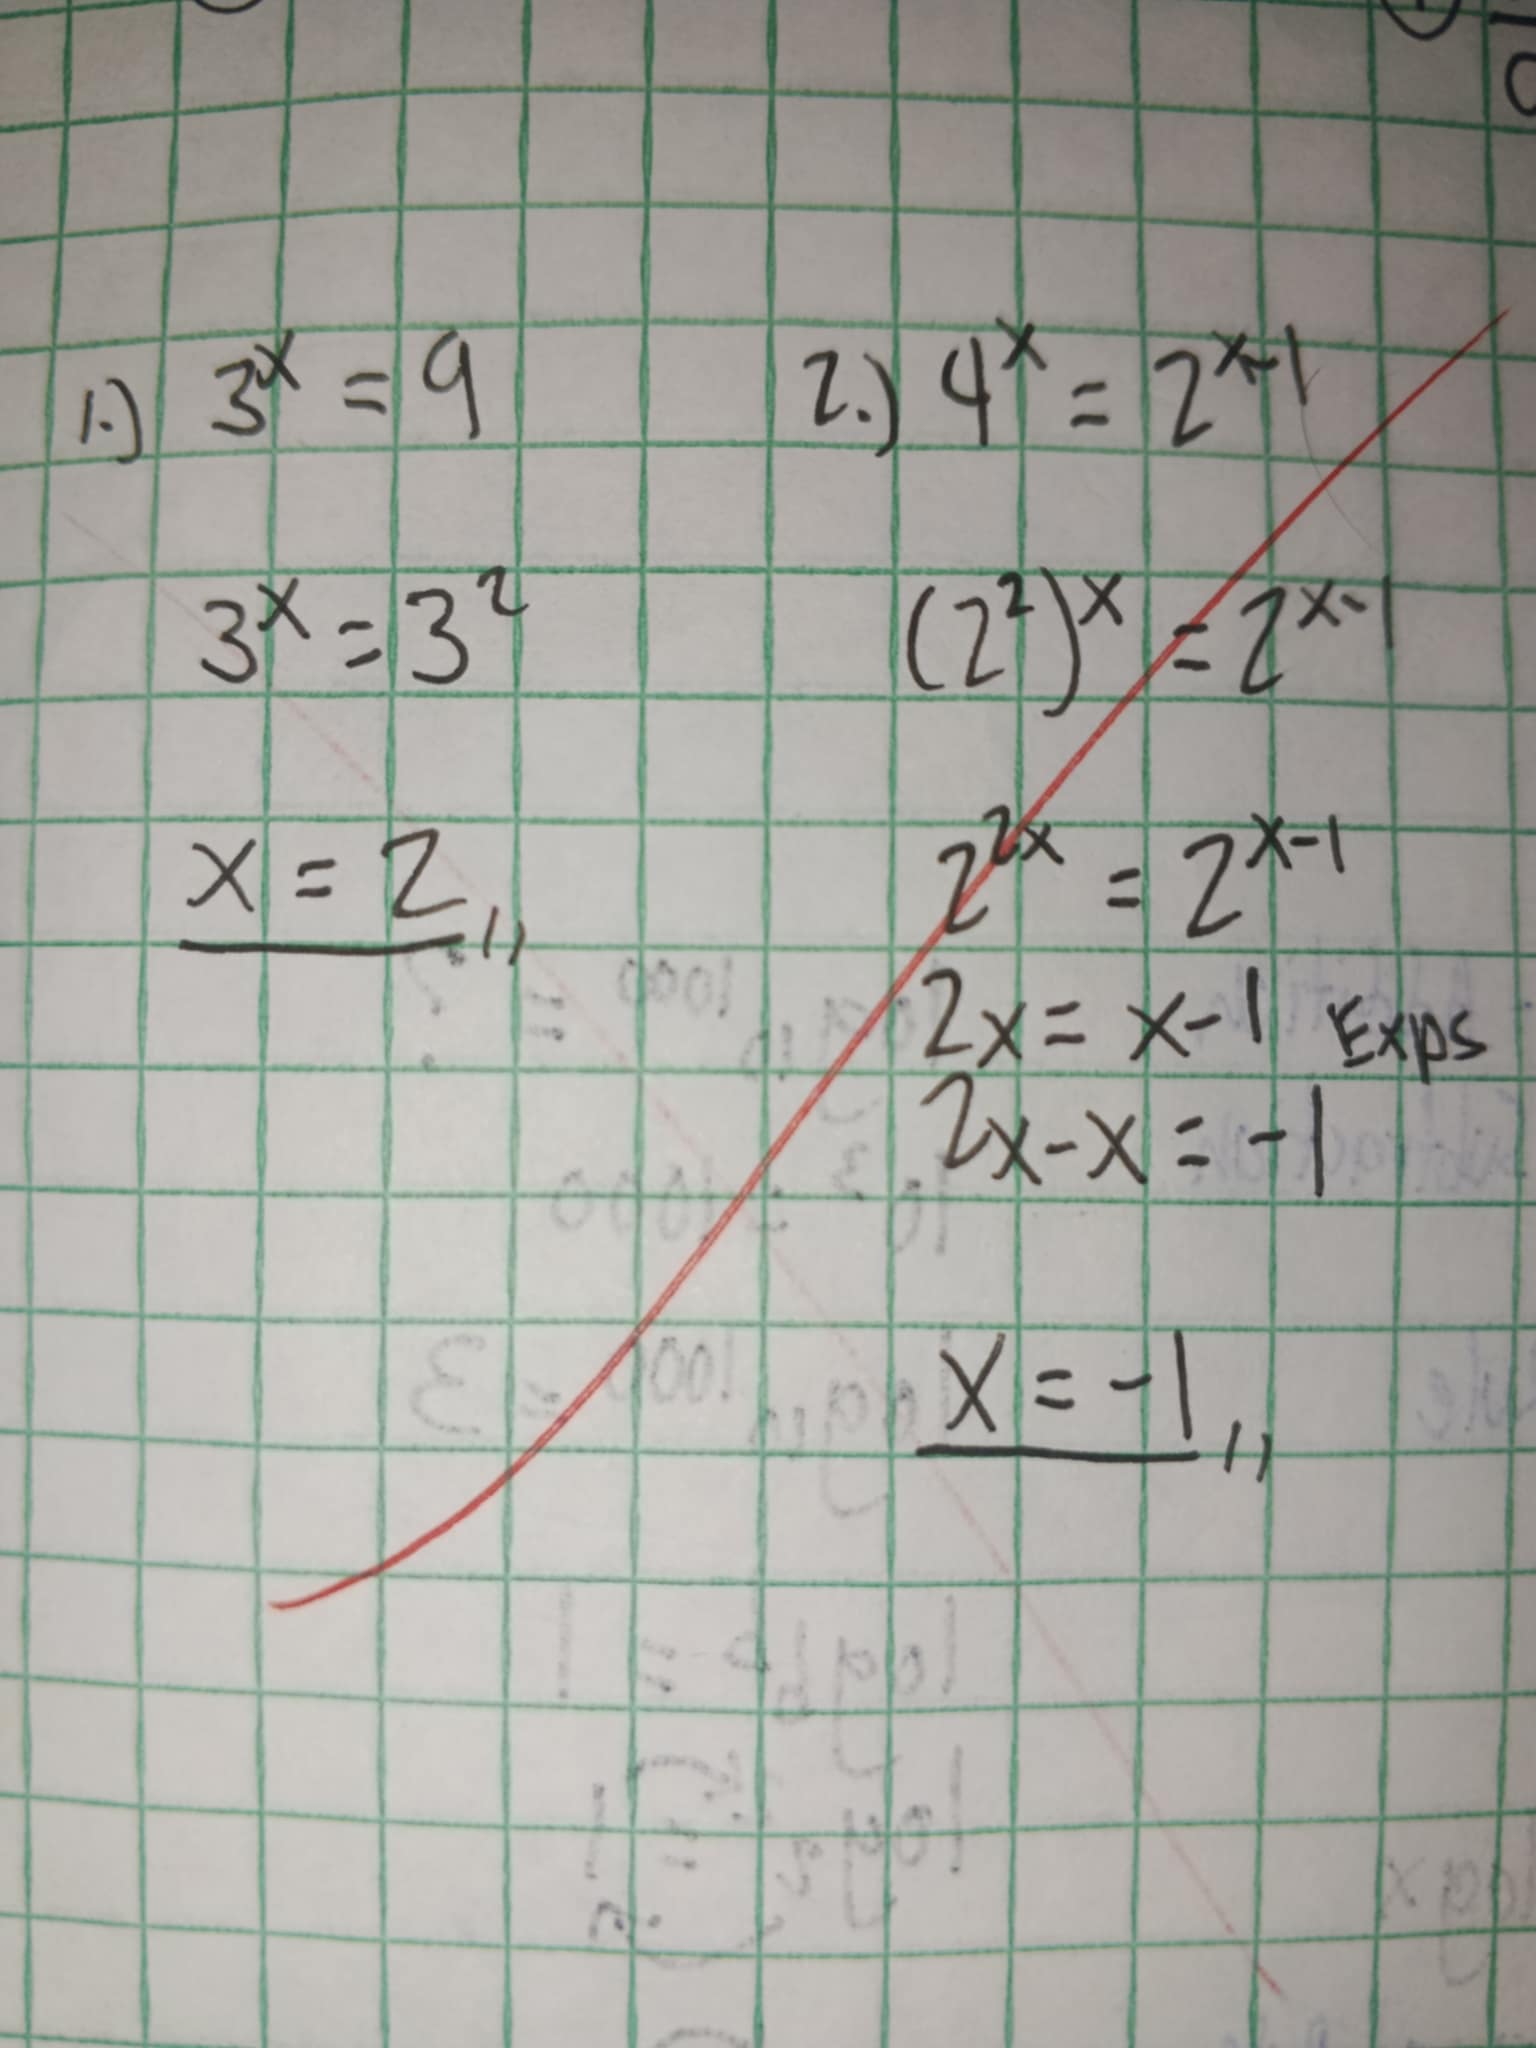 1.) 3^x = 9
3^x = 3^2
x = 2,,
2.) 4^x = 2^x-1
(2^2)^x = 2^x-1
2^2x = 2^x-1
2x = x-1 Exps
2x-x = -1
x = -1,,